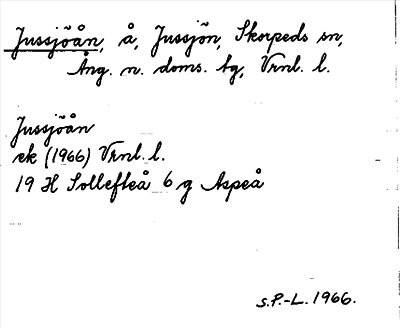 Jussjöån, å, Jussjön, Skorpeds sn,
Ång. n. doms. tg, Vrnl. l.
Jussjöån
ek (1966) Vrnl. l.
19 H Sollefteå 6 g Aspeå
S.P.-L. 1966.